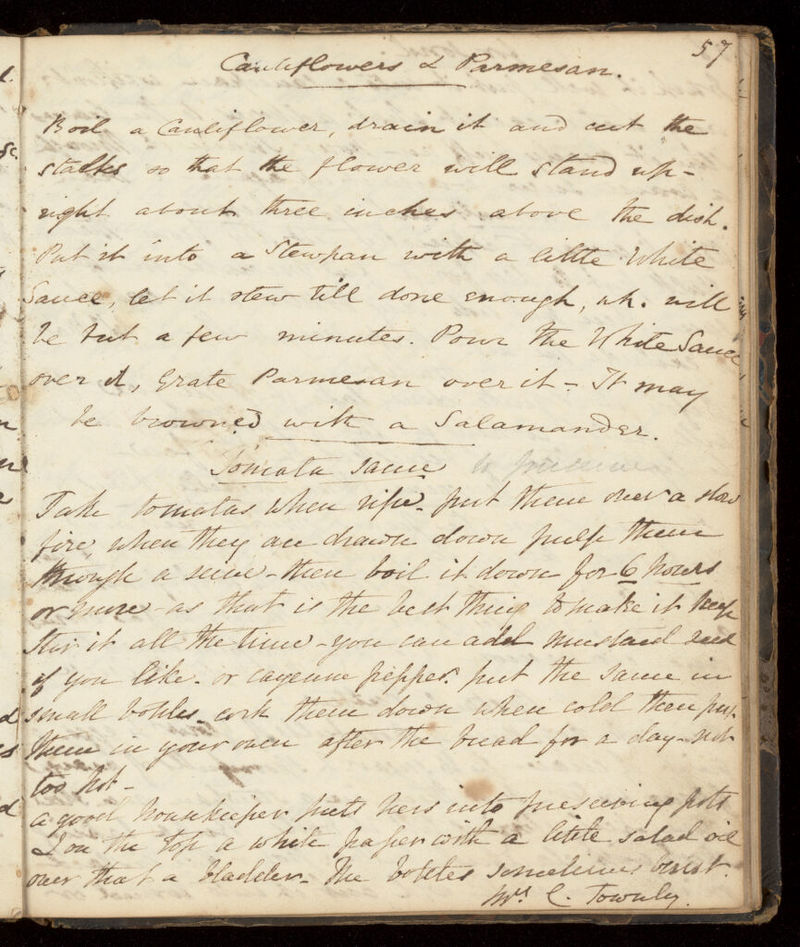 57
Cauliflowers & Parmesan.
Boil a Cauliflower, drain it and cut the
stalks so that the flower will stand up-
right about three inches above the dish.
Put it into a Stewpan with a little White
Sauce, let it stew till done enough, wh. will
be but a few minutes. Pour the White Sauce
over it, Grate Parmesan over it - It may
be browned with a Salamander.
Tomata sauce to preserve
Take tomatas when ripe. put them over a slow
fire, when they are drawn down pulp them
through a seive - then boil it down for 6 hours
or more - as that is the best thing to make it keep
Stir it all the time - you can add mustard seed
if you like - or cayenne pepper. put the same in
small bottles - cork them down when cold then put
them in your oven after the bread for a day - not
too hot -
a good housekeeper puts hers into preserving pots
& on the top a white paper with a little salad oil
over that a bladder - The bottles sometimes burst.
Mrs. C. Townly.